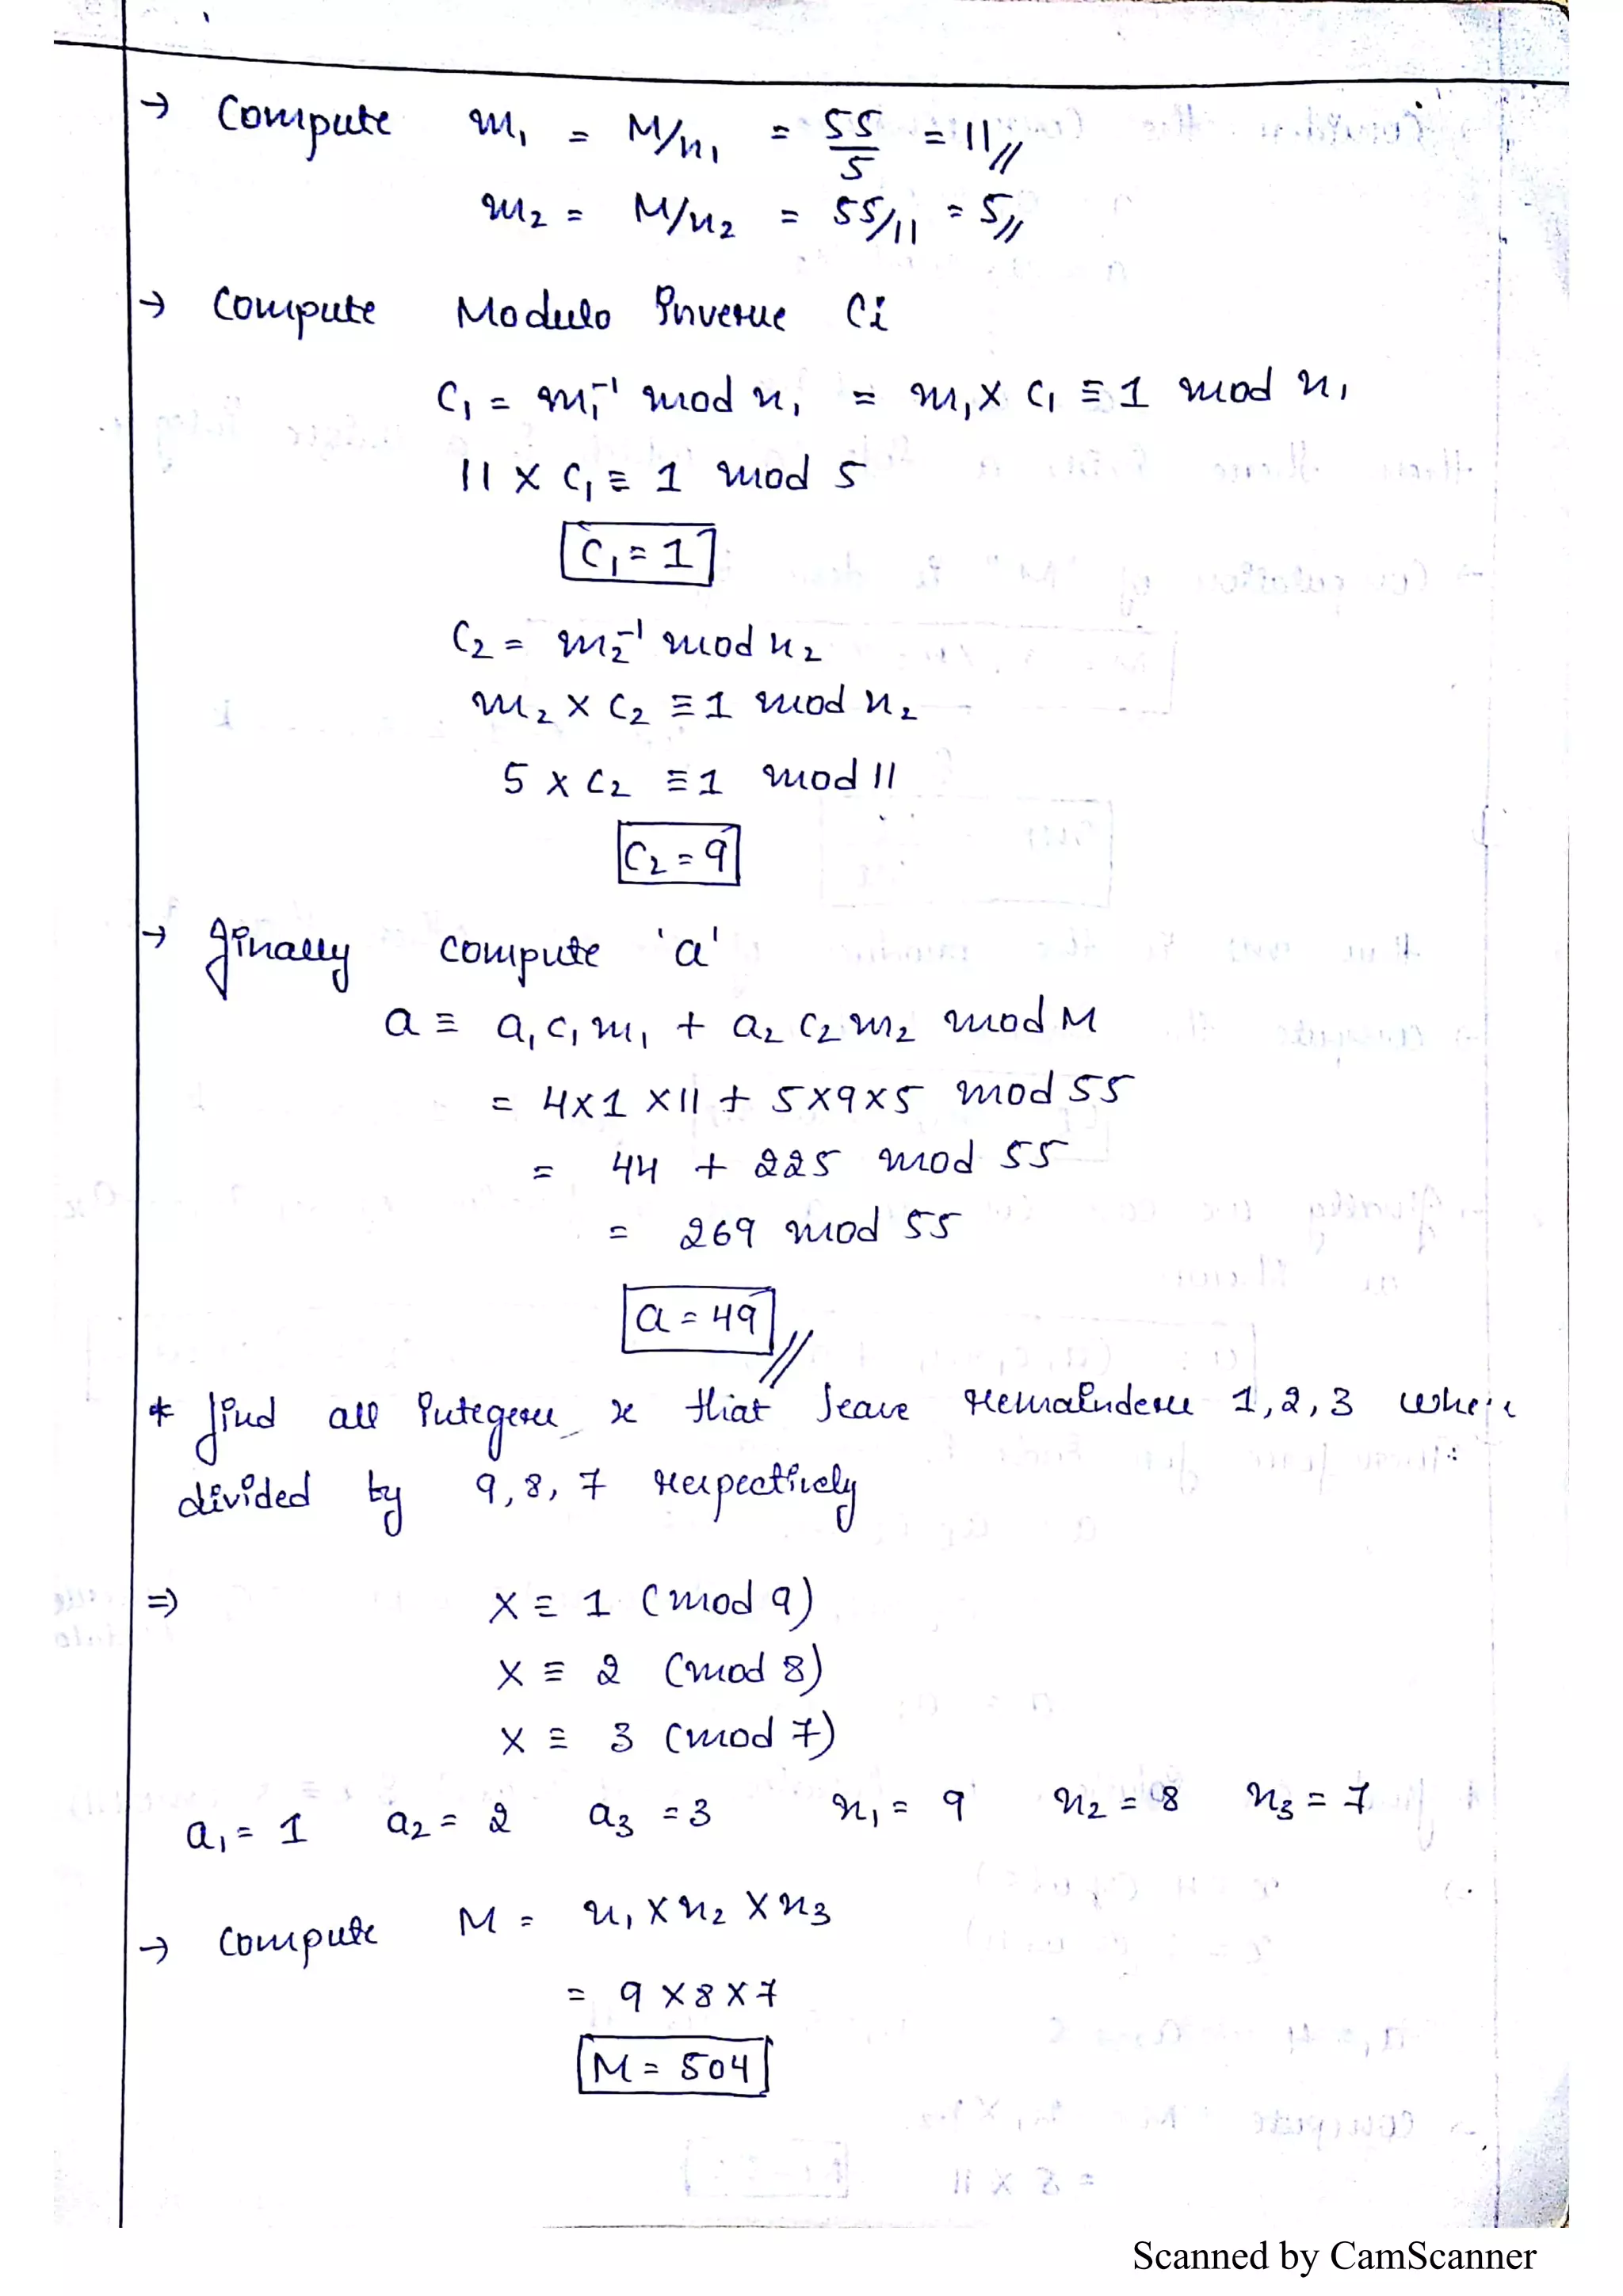 → Compute m₁ = M/n₁ = 55/5 = 11//
m₂ = M/n₂ = 55/11 = 5//
→ Compute Modulo Inverse Ci
C₁ = m₁⁻¹ mod n₁ = m₁ × C₁ ≡ 1 mod n₁
11 × C₁ ≡ 1 mod 5
C₁ = 1
C₂ = m₂⁻¹ mod n₂
m₂ × C₂ ≡ 1 mod n₂
5 × C₂ ≡ 1 mod 11
C₂ = 9
→ finally compute 'a'
a ≡ a₁ c₁ m₁ + a₂ c₂ m₂ mod M
= 4×1×11 + 5×9×5 mod 55
= 44 + 225 mod 55
= 269 mod 55
a = 49 //
* find all integers x that leave remainders 1, 2, 3 when
divided by 9, 8, 7 respectively
⇒ X ≡ 1 (mod 9)
X ≡ 2 (mod 8)
X ≡ 3 (mod 7)
a₁ = 1 a₂ = 2 a₃ = 3 n₁ = 9 n₂ = 8 n₃ = 7
→ Compute M = n₁ × n₂ × n₃
= 9 × 8 × 7
M = 504
Scanned by CamScanner